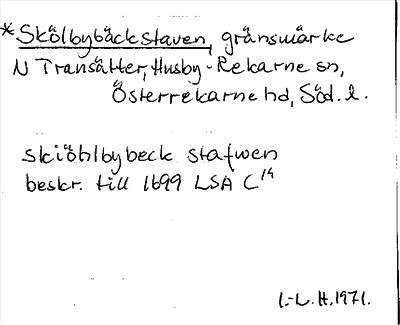 *Skölbybäckstaven, gränsmärke
N Transätter, Husby-Rekarne sn,
Österrekarne hd, Söd. l.
Skiöhlbybeck stafwen
beskr. till 1699 LSA C14
I.-L. H. 1971.